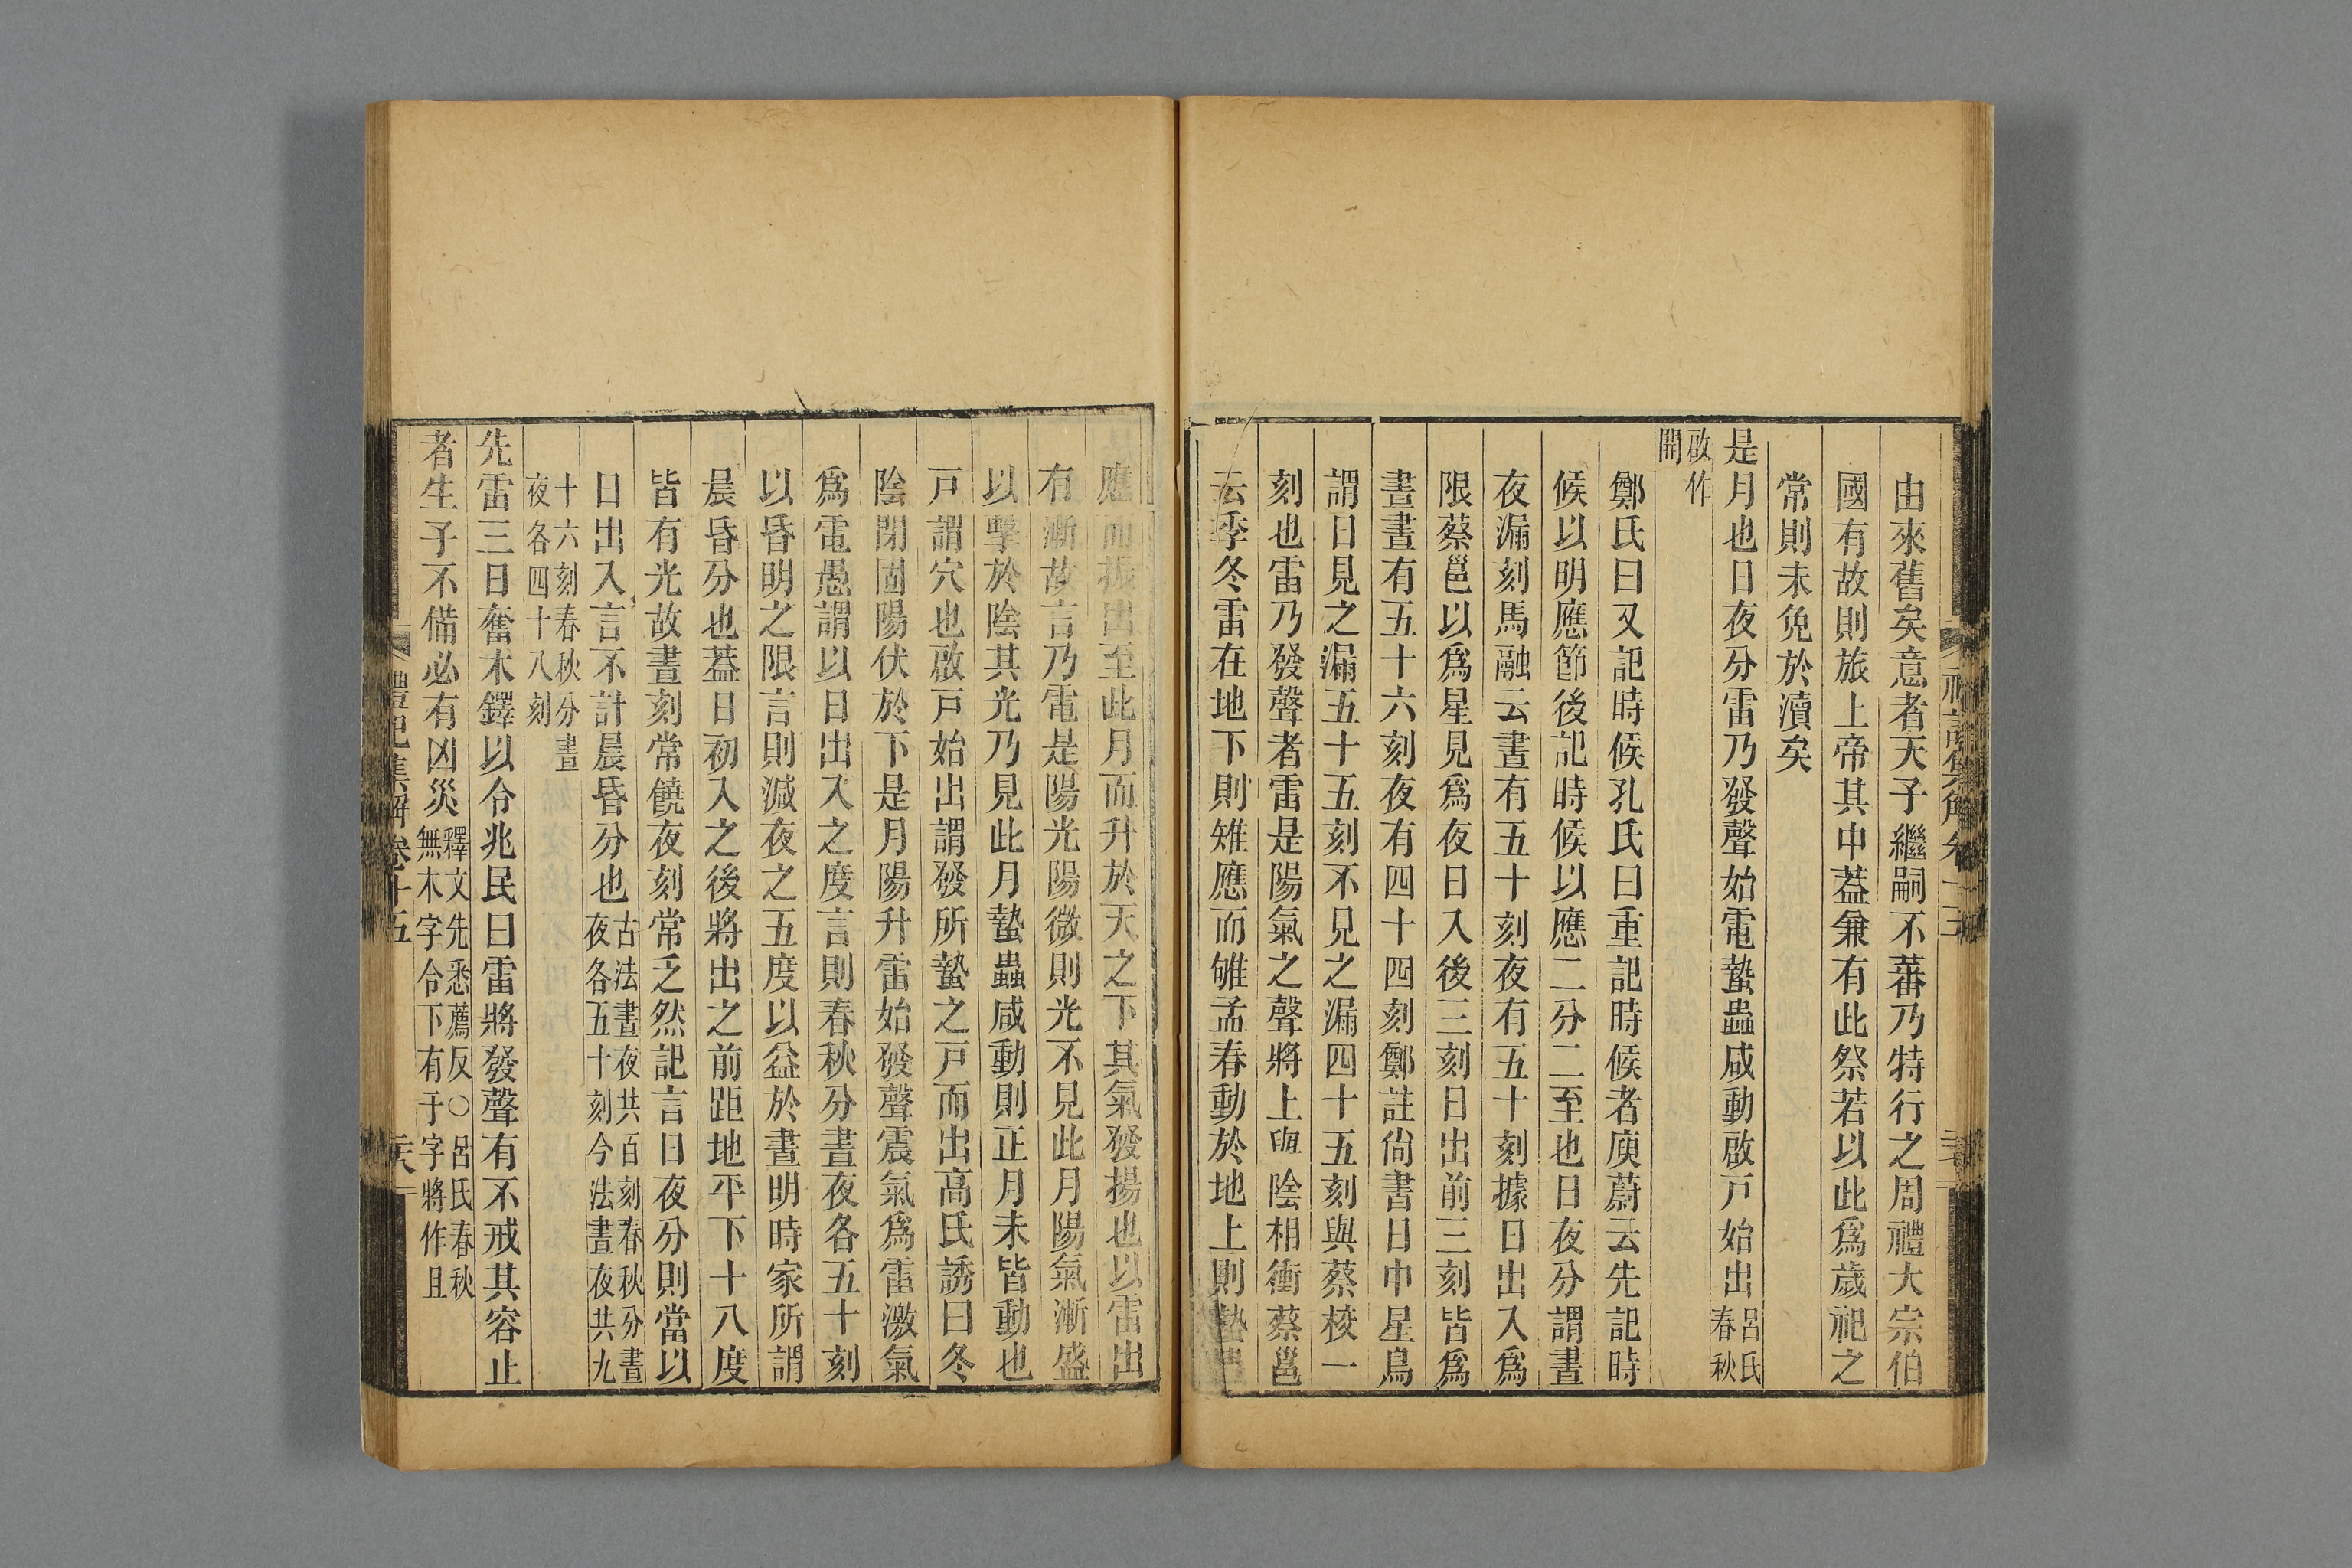 由來舊矣意者天子繼嗣不蕃乃特行之周禮大宗伯
國有故則旅上帝其中葢兼有此祭若以此爲歲祀之
常則未免於瀆矣
是月也日夜分雷乃發聲始電蟄蟲咸動啟戸始出呂氏春秋
啟作開
鄭氏曰又記時候孔氏曰重記時候者庾蔚云先記時
候以明應節後記時候以應二分二至也日夜分謂晝
夜漏刻馬融云晝有五十刻夜有五十刻據日出入爲
限蔡邕以爲星見爲夜日入後三刻日出前三刻皆爲
晝晝有五十六刻夜有四十四刻鄭註尙書日中星鳥
謂日見之漏五十五刻不見之漏四十五刻與蔡校一
刻也雷乃發聲者雷是陽氣之聲將上與陰相衝蔡邕
云季冬雷在地下則雉應而雊孟春動於地上則蟄蟲
應而振出至此月而升於天之下其氣發揚也以雷出
有漸故言乃電是陽光陽微則光不見此月陽氣漸盛
以擊於陰其光乃見此月蟄蟲咸動則正月未皆動也
戸謂穴也啟戸始出謂發所蟄之戸而出高氏誘曰冬
陰閉固陽伏於下是月陽升雷始發聲震氣爲雷激氣
爲電愚謂以日出入之度言則春秋分晝夜各五十刻
以昏明之限言則減夜之五度以益於晝明時家所謂
晨昏分也葢日初入之後將出之前距地平下十八度
皆有光故晝刻常饒夜刻常乏然記言日夜分則當以
日出入言不計晨昏分也古法晝夜共百刻春秋分晝夜各五十刻今法晝夜共九
十六刻春秋分晝夜各四十八刻
先雷三日奮木鐸以令兆民曰雷將發聲有不戒其容止
者生子不備必有凶災釋文先悉薦反○呂氏春秋無木字令下有于字將作且
禮記集解卷十五